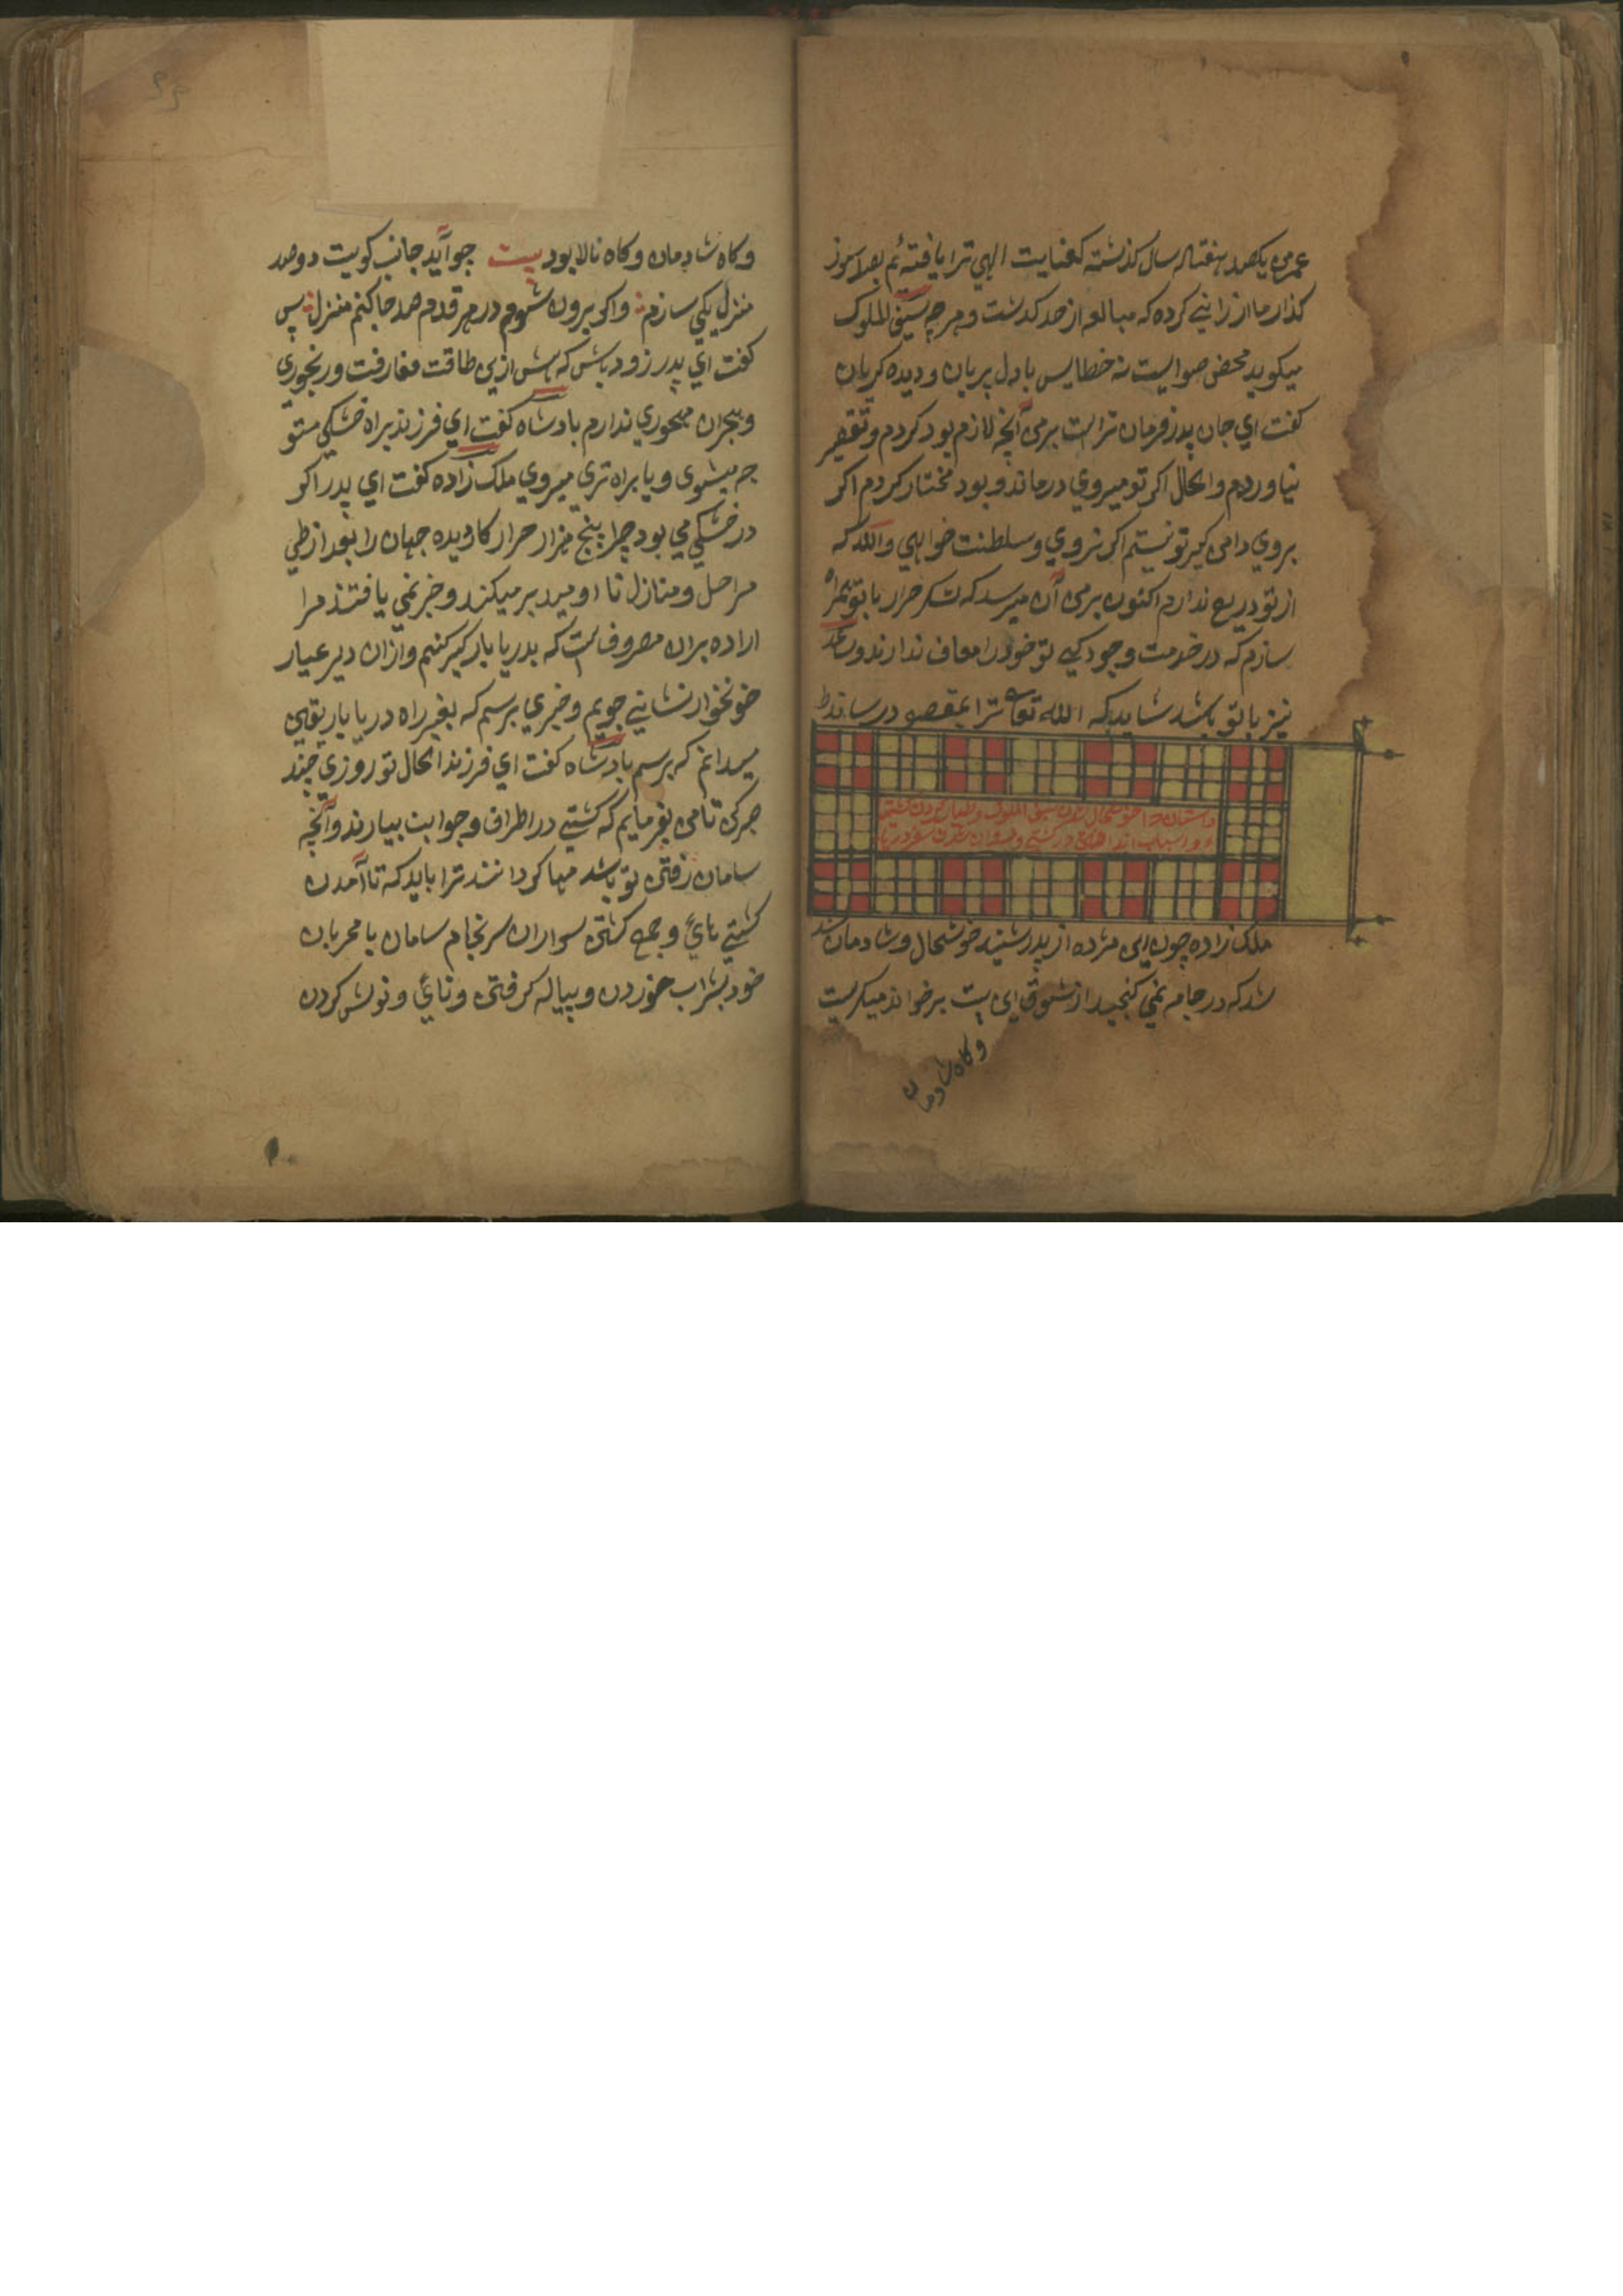 عمر من یکصد هفتاد سال کذشته کعنایت الهی ترا یافته ئم بصد سوز
کذار ما ارزانی کرده که مبالغه از حد کدشت و هرچه سیف الملوک
میکوید محض صوابست نه خطا پس با دل بریان و دیده کریان
کفت ای جان پدر فرمان تراست بر من آنچه لازم بود کردم و تقصیر
نیاوردم والحال اکر تو میروی درماند و بود مختار کردم اکر
بروی دامن کیر تو نیستم اکر نروی و سلطنت خواهی والله که
از تو دریغ ندارم اکنون بر من آن میرسد که لشکر جرار با تو همراه
سازم که در خدمت وجودکی تو خود را معاف ندارند و ساعد
نیز با تو باشد شاید که الله تعا ترا بمقصود رساند
داستان خوشحال شدن سیف الملوک و طیار کردن کشتی
و اسباب انداختن در کشتی و روان شدن سفر دریا
ملک زاده چون این مژده از پدر شنید خوشحال و شادمان شد
شد که در جامه نمی کنجید از شوق این بیت بر خواند میکریست
و کاه شادمان
و کاه شادمان و کاه نالا بود بیت جو آید جانب کویت دو صد
منزل یکی سازم و اکر برون شوم در هر قدم صد جا کنم منزل پس
کفت ای پدر زود باش که بیش ازین طاقت مفارقت و رنجوری
و هجران مهجوری ندارم بادشاه کفت ای فرزند براه خشکی متو
جه میشوی و یا براه تری میروی ملک زاده کفت ای پدر اکر
در خشکی می بود چرا پنج هزار جرار کار دیده جهان را بعد از طی
مراحل و منازل نا اومید بر میکند و خبر نمی یافتند مرا
اراده بران مصروفست که بدریا بار کیر کنیم و ازان دیر عیار
خونخوار نشانی جویم و خبری برسم که بغیر راه دریا باریقین
میدانم که برسم بادشاه کفت ای فرزند الحال تو روزی چند
صبر کن تا من بفرمایم که کشتی در اطراف و جوانب بیارند و آنچه
سامان رفتن تو باشد مهیا کردانند ترا باید که تا آمدن
کشتی بائ و جمع کشتی سواران سرنجام سامان با محربان
خود بشراب خوردن و پیاله کرفتن و نائ و نوش کردن